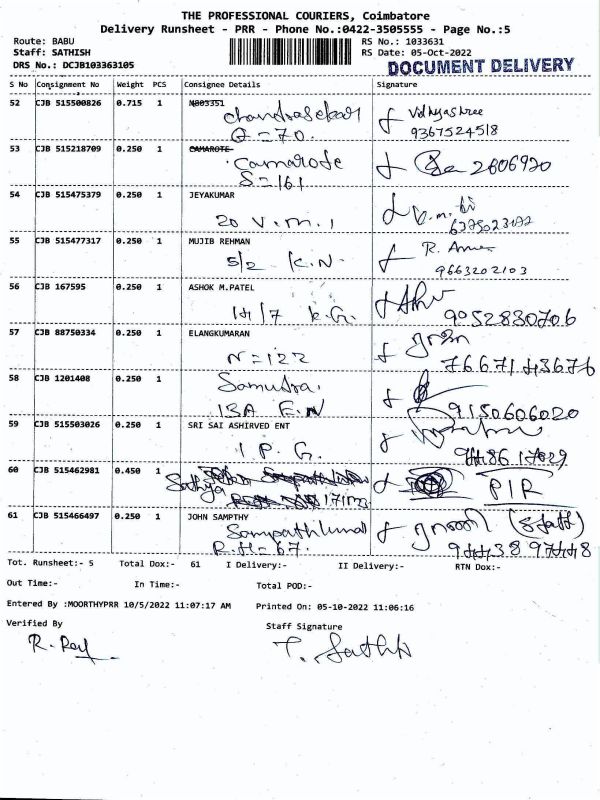 THE PROFESSIONAL COURIERS, Coimbatore
Delivery Runsheet - PRR - Phone No.:0422-3505555 - Page No.:5
Route: BABU RS No.: 1033631
Staff: SATHISH RS Date: 05-Oct-2022
DRS No.: DCJB103363105 DOCUMENT DELIVERY
S No Consignment No Weight PCS Consignee Details Signature
52 CJB 515500826 0.715 1 N003351
Chandrasekar Vidhyashree
Q=70. 9367524518
53 CJB 515218709 0.250 1 CAMAROTE
Camarote 2606920
S=161
54 CJB 515475379 0.250 1 JEYAKUMAR
20 V.m.1
55 CJB 515477317 0.250 1 MUJIB REHMAN R.
5/2 K.N. 9663202103
56 CJB 167595 0.250 1 ASHOK M.PATEL
14/7 K.G. 9052830706
57 CJB 88750334 0.250 1 ELANGKUMARAN
N=122 7667143676
58 CJB 1201408 0.250 1 Samudra.
13A E.N 9150606020
59 CJB 515503026 0.250 1 SRI SAI ASHIRVED ENT
1 P.G.
60 CJB 515462981 0.450 1
Sathya 171m PIR
61 CJB 515466497 0.250 1 JOHN SAMPTHY
Sampathkumar
R.H=67. 9443897448
Tot. Runsheet:- 5 Total Dox:- 61 I Delivery:- II Delivery:- RTN Dox:-
Out Time:- In Time:- Total POD:-
Entered By :MOORTHYPRR 10/5/2022 11:07:17 AM Printed On: 05-10-2022 11:06:16
Verified By Staff Signature
R. Raj T. Sathis